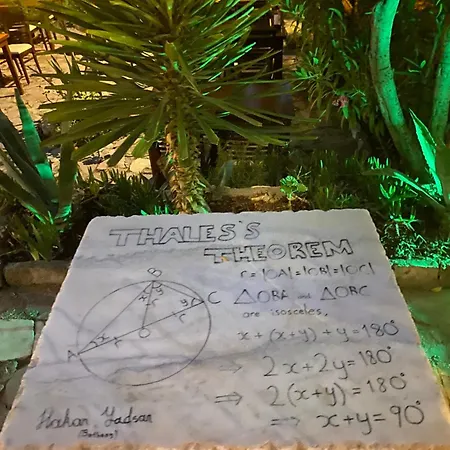 THALES'S
THEOREM
r = |OA| = |OB| = |OC|
△OBA and △OBC
are isosceles,
x + (x+y) + y = 180°
⇒ 2x + 2y = 180°
⇒ 2(x+y) = 180°
⇒ x + y = 90°
B
x y
r
y C
r
O
A x r
Hakan Yadsan